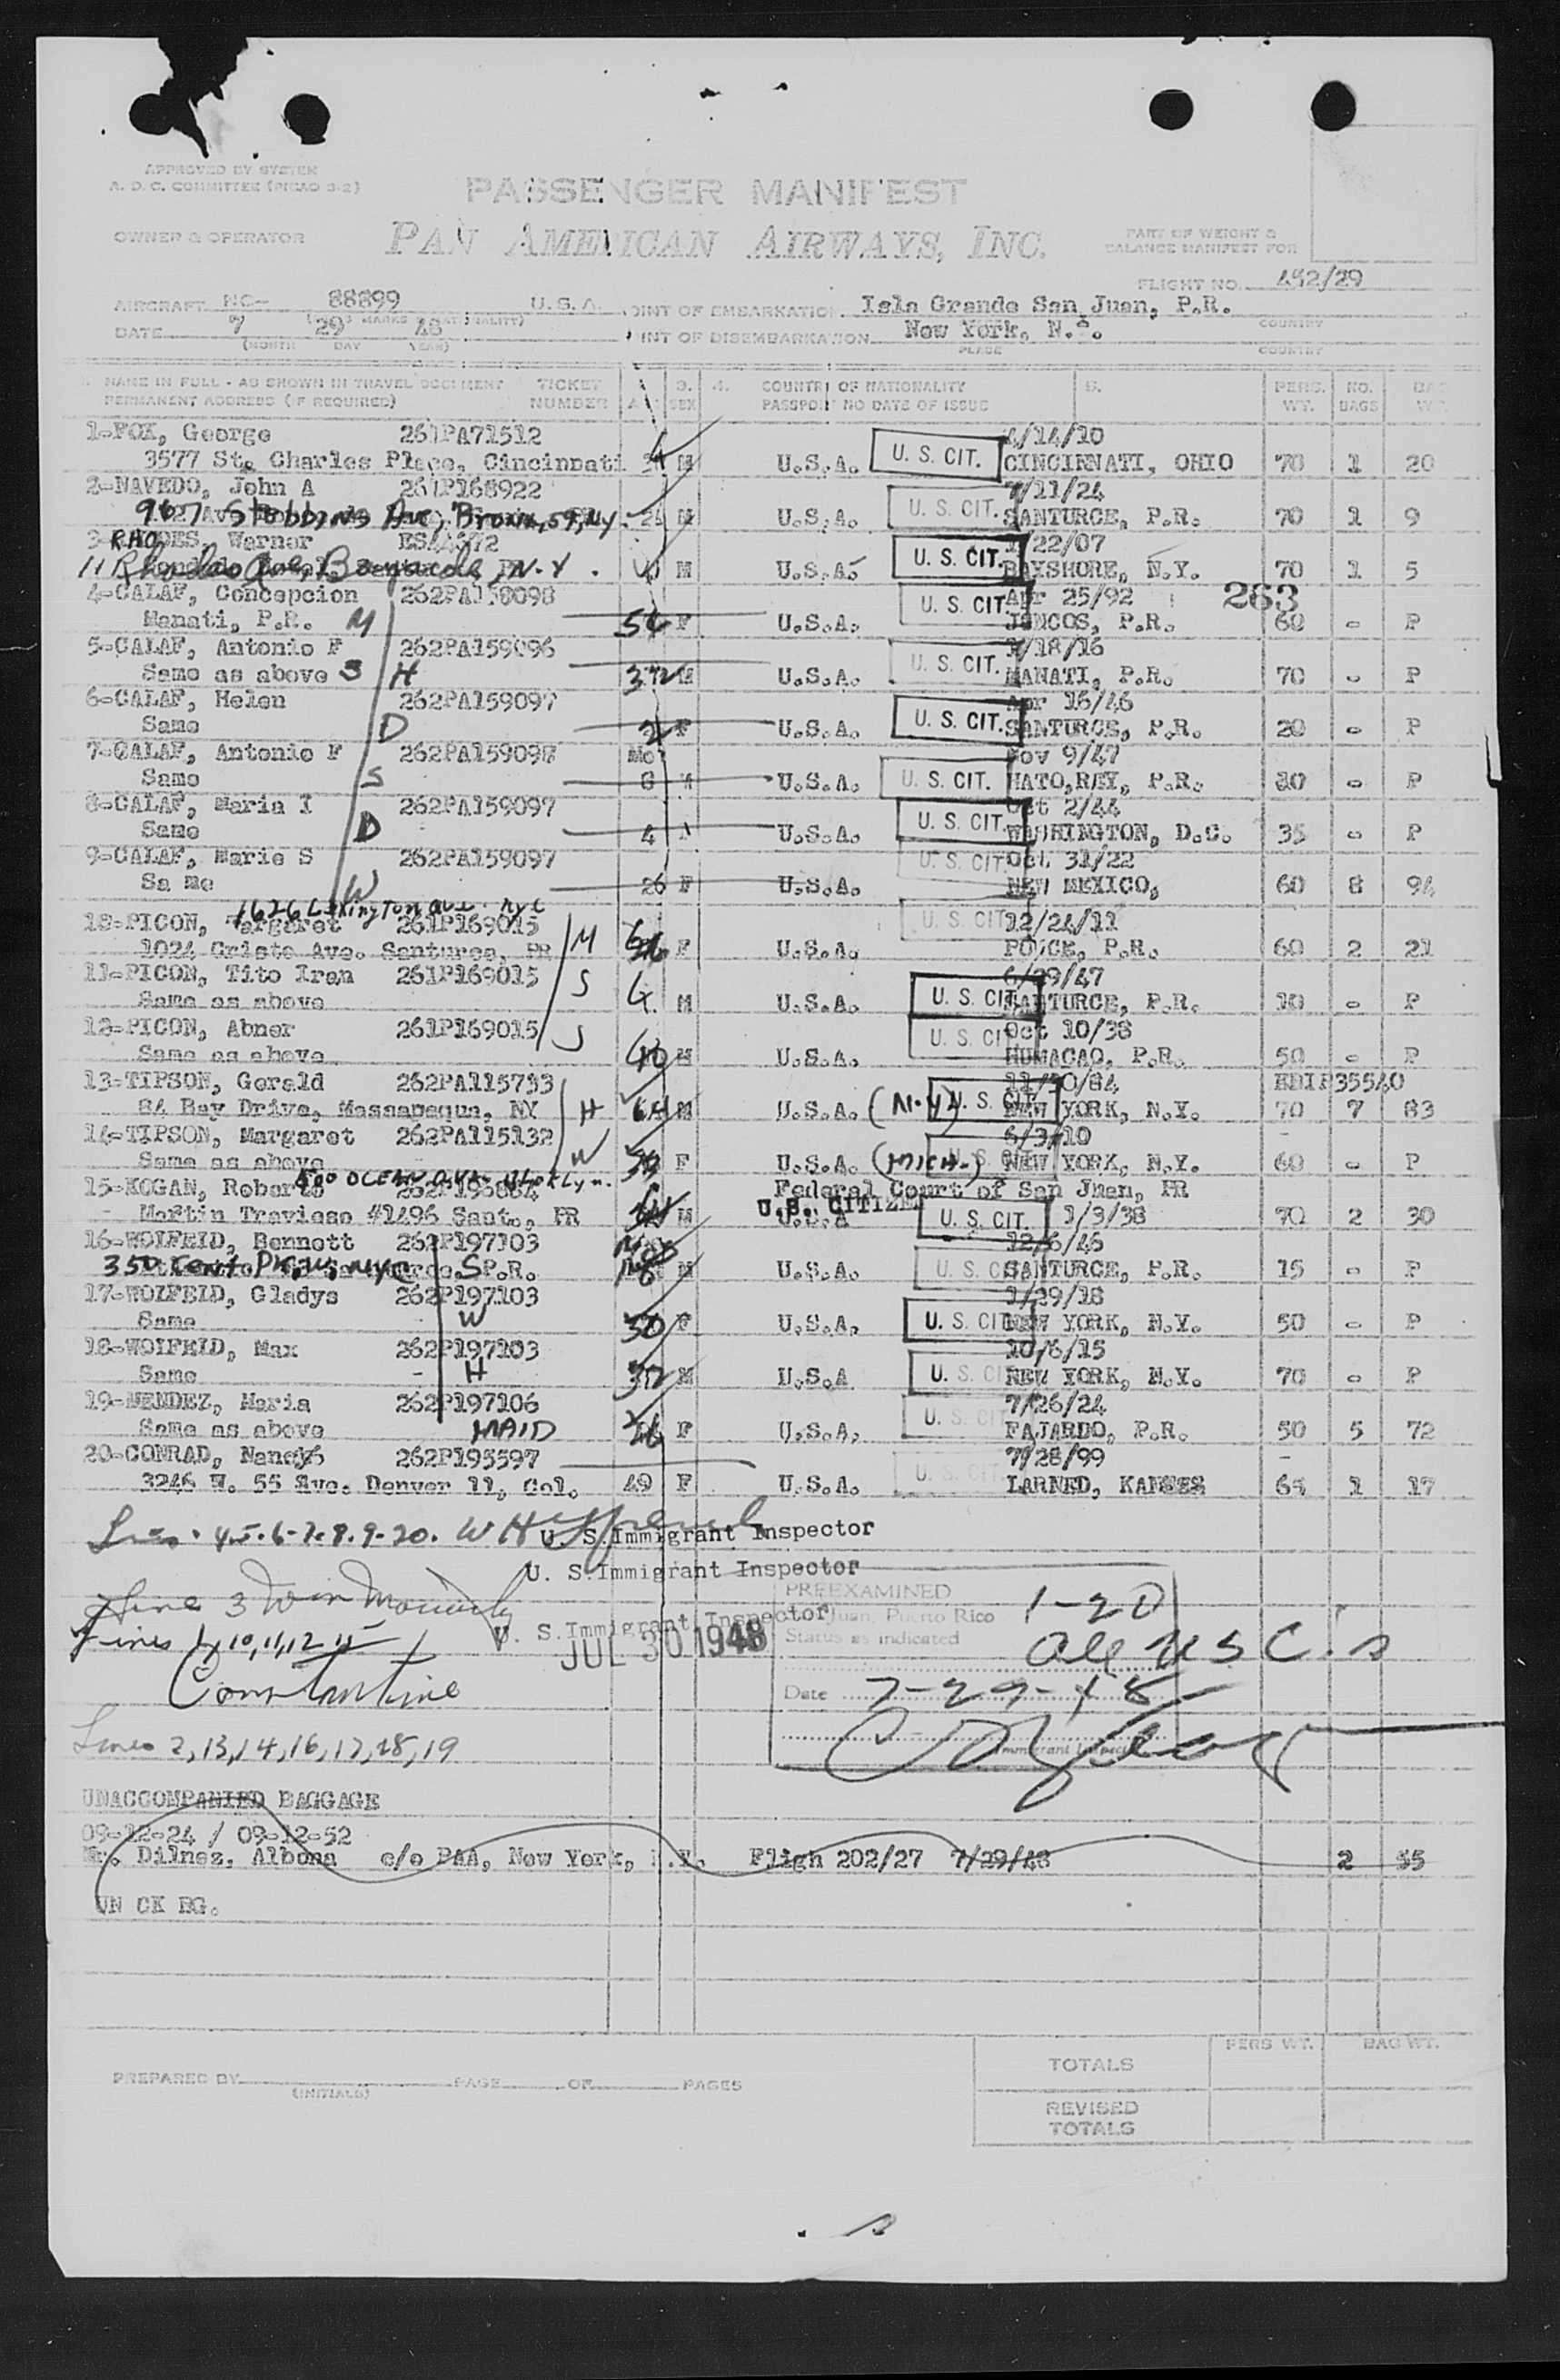 APPROVED BY SYSTEM
A. D. C. COMMITTEE (PICAO 3-2)
PASSENGER MANIFEST
OWNER & OPERATOR
PAN AMERICAN AIRWAYS, INC.
PART OF WEIGHT &
BALANCE MANIFEST FOR
FLIGHT NO. 492/29
AIRCRAFT NC- 88899 U.S.A. OINT OF EMBARKATION Isla Grande San Juan, P.R.
DATE 7 29 48 INT OF DISEMBARKATION New York, N.Y.
(MONTH DAY YEAR) PLACE COUNTRY
NAME IN FULL - AS SHOWN IN TRAVEL DOCUMENT TICKET 3. 4. COUNTRY OF NATIONALITY 5. PERS. NO. BAG
PERMANENT ADDRESS (IF REQUIRED) NUMBER SEX PASSPORT NO DATE OF ISSUE WT. BAGS WT.
1-FOX, George 261PA71512 4/14/10
3577 St. Charles Place, Cincinnati M U.S.A. U. S. CIT. CINCINNATI, OHIO 70 1 20
2-NAVEDO, John A 261P168922 7/11/24
967 Stebbins Ave, Bronx, 59, N.Y. 24 M U.S.A. U. S. CIT. SANTURCE, P.R. 70 1 9
3-RHODES, Warner ES44372 /22/07
11 Rhodes Ave, N.Y. M U.S.A. U. S. CIT. BAYSHORE, N.Y. 70 1 5
4-CALAF, Concepcion 262PA158098 Apr 25/92 263
Manati, P.R. M 56 F U.S.A. U. S. CIT. JUNCOS, P.R. 60 - P
5-CALAF, Antonio F 262PA159096 1/18/16
Same as above S H 32 M U.S.A. U. S. CIT. MANATI, P.R. 70 - P
6-CALAF, Helen 262PA159097 Apr 16/46
Same D 2 F U.S.A. U. S. CIT. SANTURCE, P.R. 20 - P
7-CALAF, Antonio F 262PA159098 Mo Nov 9/47
Same S 8 M U.S.A. U. S. CIT. HATO,REY, P.R. 20 - P
8-CALAF, Maria I 262PA159097 Oct 2/44
Same D 4 U.S.A. U. S. CIT. WASHINGTON, D.C. 35 - P
9-CALAF, Marie S 262PA159097 Oct 31/22
Sa me W 26 F U.S.A. U. S. CIT. NEW MEXICO, 60 8 94
1626 Lexington ave. nyc
10-PICON, Margaret 261P169015 12/24/11
1024 Cristo Ave. Santurce, PR M 36 F U.S.A. U. S. CIT. PONCE, P.R. 60 2 21
11-PICON, Tito Iram 261P169015 6/29/47
Same as above S M U.S.A. U. S. CIT. SANTURCE, P.R. 10 - P
12-PICON, Abner 261P169015 Oct 10/38
Same as above S 10 M U.S.A. U. S. CIT. HUMACAO, P.R. 50 - P
13-TIPSON, Gerald 262PA115733 11/30/84 EDIP35540
84 Bay Drive, Massapequa, NY H 64 M U.S.A. (N.Y) U. S. CIT. NEW YORK, N.Y. 70 7 83
14-TIPSON, Margaret 262PA115132 6/3/10
Same as above W 38 F U.S.A. (MICH.) U. S. CIT. NEW YORK, N.Y. 60 - P
500 OCEAN AVE. Brooklyn.
15-KOGAN, Roberto 262P196884 Federal Court of San Juan, PR
Martin Travieso #1496 Sant., PR M U.S. CITIZEN U.S.A U. S. CIT. 1/3/38 70 2 30
16-WOLFEID, Bennett 262P197103 12/6/46
350 Cent. Pk. W. NYC S P.R. M U.S.A. U. S. CIT. SANTURCE, P.R. 15 - P
17-WOLFEID, Gladys 262P197103 1/29/18
Same W 30 F U.S.A. U. S. CIT. NEW YORK, N.Y. 50 - P
18-WOLFEID, Max 262P197103 10/6/15
Same - H 32 M U.S.A U. S. CIT. NEW YORK, N.Y. 70 - P
19-MENDEZ, Maria 262P197106 7/26/24
Same as above MAID F U.S.A. U. S. CIT. FAJARDO, P.R. 50 5 72
20-CONRAD, Nancy 262P195597 7/28/99
3246 W. 55 Ave. Denver 11, Col. 49 F U.S.A. U. S. CIT. LARNED, KANSES 64 1 17
Lines 4-5-6-7-8-9-20. U. S. Immigrant Inspector
U. S. Immigrant Inspector
PREEXAMINED
Line 3 1-20
Juan, Puerto Rico
Lines 1, 10, 11, 12 15 U. S. Immigrant Inspector
JUL 30 1948
Status as indicated all US C.s
Constantine
Date 7-29-48
Immigrant Inspector
Lines 2, 13, 14, 16, 17, 18, 19
UNACCOMPANIED BAGGAGE
09-12-24 / 09-12-52
Mr. Dilnez, Albona c/o PAA, New York, N.Y. Fligh 202/27 7/29/48 2 55
UN CK BG.
PERS WT. BAG WT.
TOTALS
PREPARED BY (INITIALS) PAGE OF PAGES
REVISED
TOTALS